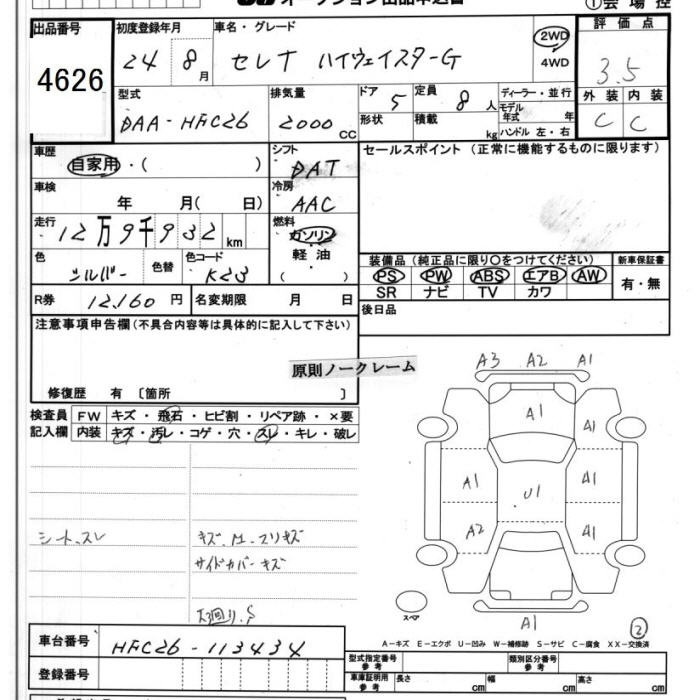 オークション出品申込書
①会場控
出品番号 初度登録年月 車名・グレード 評価点
4626
24 8月 セレナ ハイウェイスターG 2WD 4WD 3.5
型式 排気量 ドア 定員 ディーラー・並行 外装 内装
DAA-HFC26 2000cc 5 8人 モデル年式 年 C C
形状 積載 kg ハンドル 左・右
車歴 シフト セールスポイント (正常に機能するものに限ります)
自家用・( ) DAT
車検 冷房
年 月( 日) AAC
走行 燃料
12万9千932km ガソリン
軽油
( )
色 色替 色コード
シルバー K23
装備品 (純正品に限り○をつけてください) 新車保証書
PS PW ABS エアB AW 有・無
SR ナビ TV カワ
R券 12,160円 名変期限 月 日 後日品
注意事項申告欄 (不具合内容等は具体的に記入して下さい)
原則ノークレーム
修復歴 有 〔箇所 〕
検査員 FW キズ・飛石・ヒビ割・リペア跡・×要
記入欄 内装 キズ・汚レ・コゲ・穴・スレ・キレ・破レ
A3 A2 A1
A1 A1
A1 U1 A1
A2 A1
A1
シートスレ
サイドカバーキズ
下廻りS
スペア
②
A-キズ E-エクボ U-凹み W-補修跡 S-サビ C-腐食 XX-交換済
車台番号 HFC26-113434
登録番号
型式指定番号 参考 類別区分番号 参考
車庫証明用 参考 長さ cm 幅 cm 高さ cm